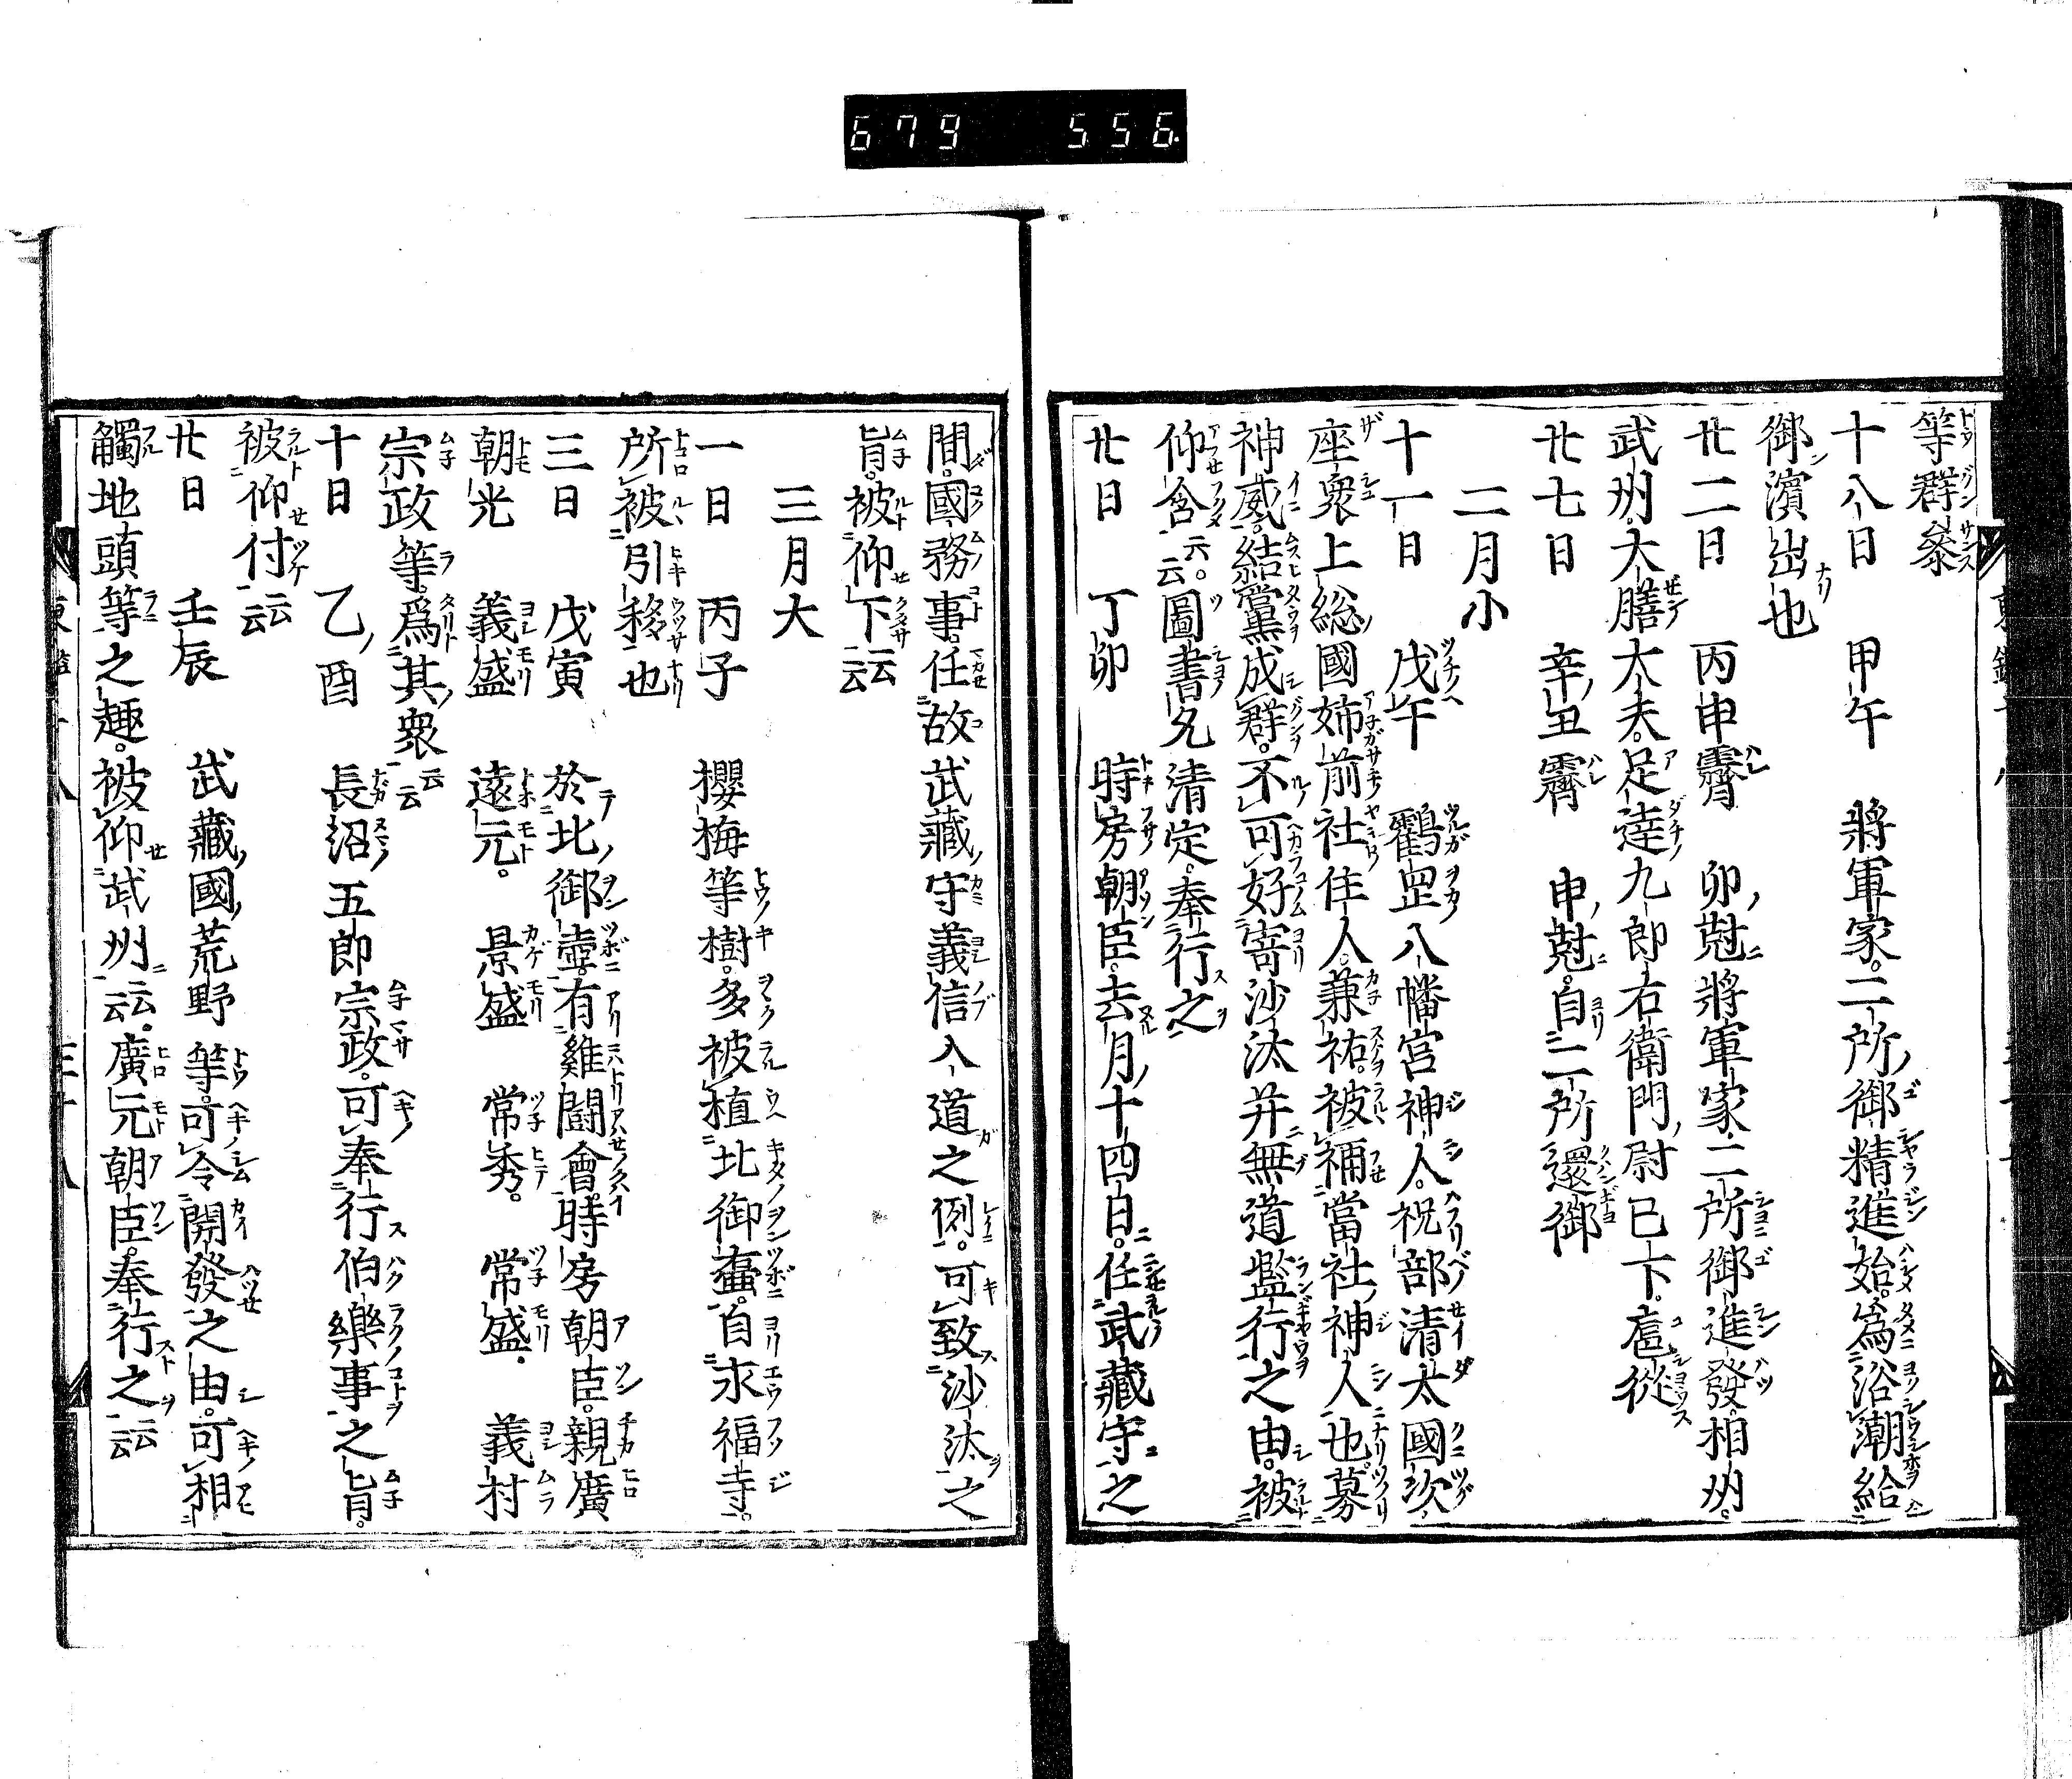 679 556
等群參
十八日 甲午 將軍家。二所御精進始。爲浴潮給
御濱出也
廿二日 丙申霽 卯尅將軍家二所御進發。相州。
武州。大膳大夫。足達九郎右衛門尉已下。扈從
廿七日 辛丑霽 申尅。自二所還御
二月小
十一日 戊午 鶴罡八幡宮神人。祝部清太國次
座衆上総國姉前社住人。兼祐。被補當社神人也。募
神威。結黨成群。不可好寄沙汰并無道濫行之由。被
仰含云云。圖書允清定。奉行之
廿日 丁卯 時房朝臣。去月十四日。任武藏守之
間。國務事。任故武藏守義信入道之例。可致沙汰之
旨。被仰下云云
三月大
一日 丙子 櫻梅等樹。多被植北御壷。自永福寺。
所被引移也
三日 戊寅 於北御壷。有雞闘會。時房朝臣。親廣
朝光 義盛 遠元。 景盛 常秀。 常盛。 義村
宗政等。爲其衆云云
十日 乙酉 長沼五郎宗政。可奉行伯樂事之旨。
被仰付云云
廿日 壬辰 武藏國荒野等。可令開發之由。可相
觸地頭等之趣。被仰武州云云。廣元朝臣。奉行之云云